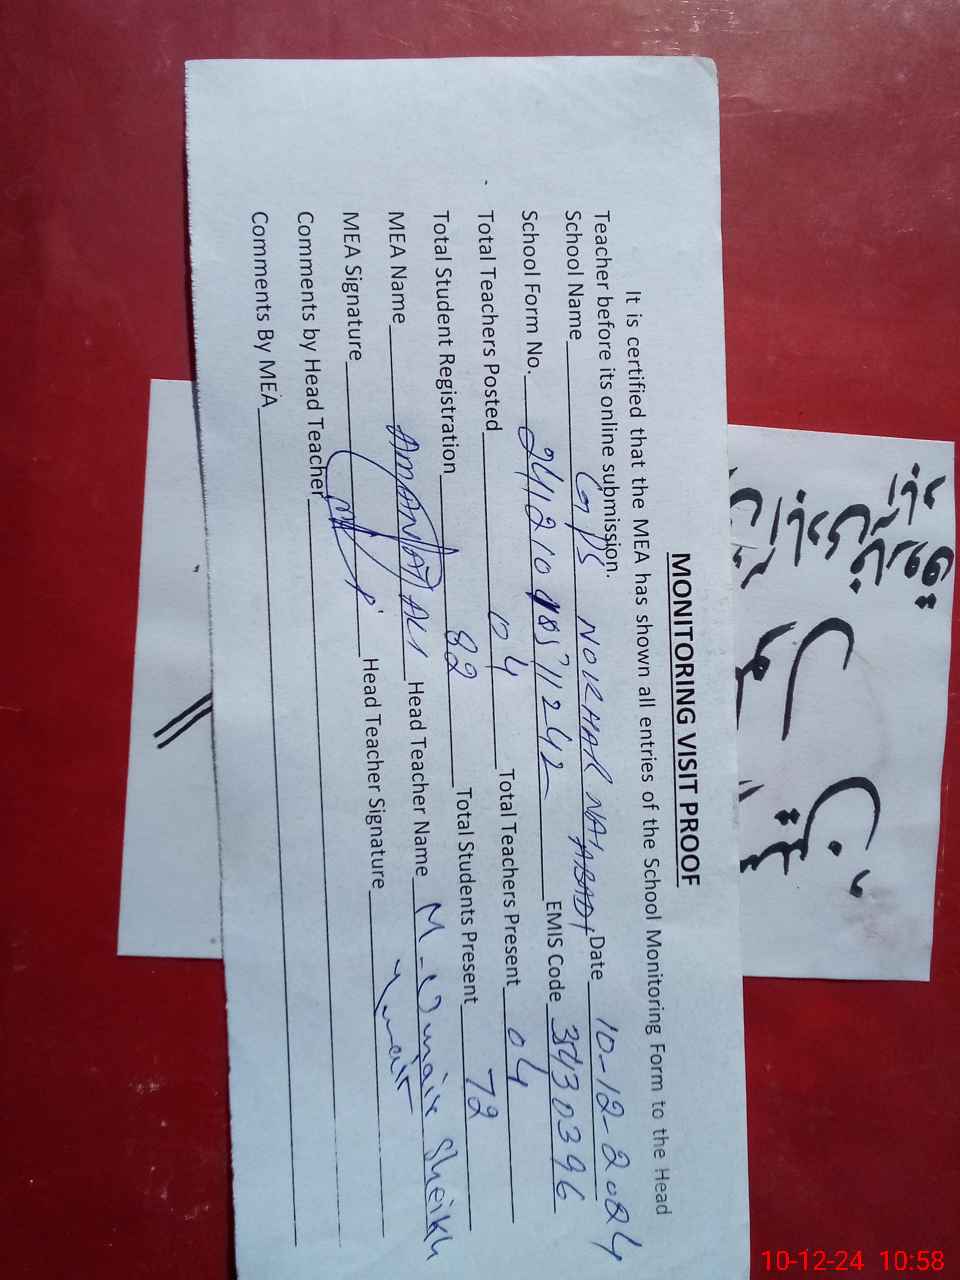 MONITORING VISIT PROOF
It is certified that the MEA has shown all entries of the School Monitoring Form to the Head
Teacher before its online submission.
School Name GPS NORHAR Date 10-12-2024
School Form No. EMIS Code
Total Teachers Posted 04 Total Teachers Present 04
Total Student Registration 82 Total Students Present 72
MEA Name AMANAT ALI Head Teacher Name M-Umair Sheikh
MEA Signature Head Teacher Signature Umair
Comments by Head Teacher
Comments By MEA
10-12-24 10:58